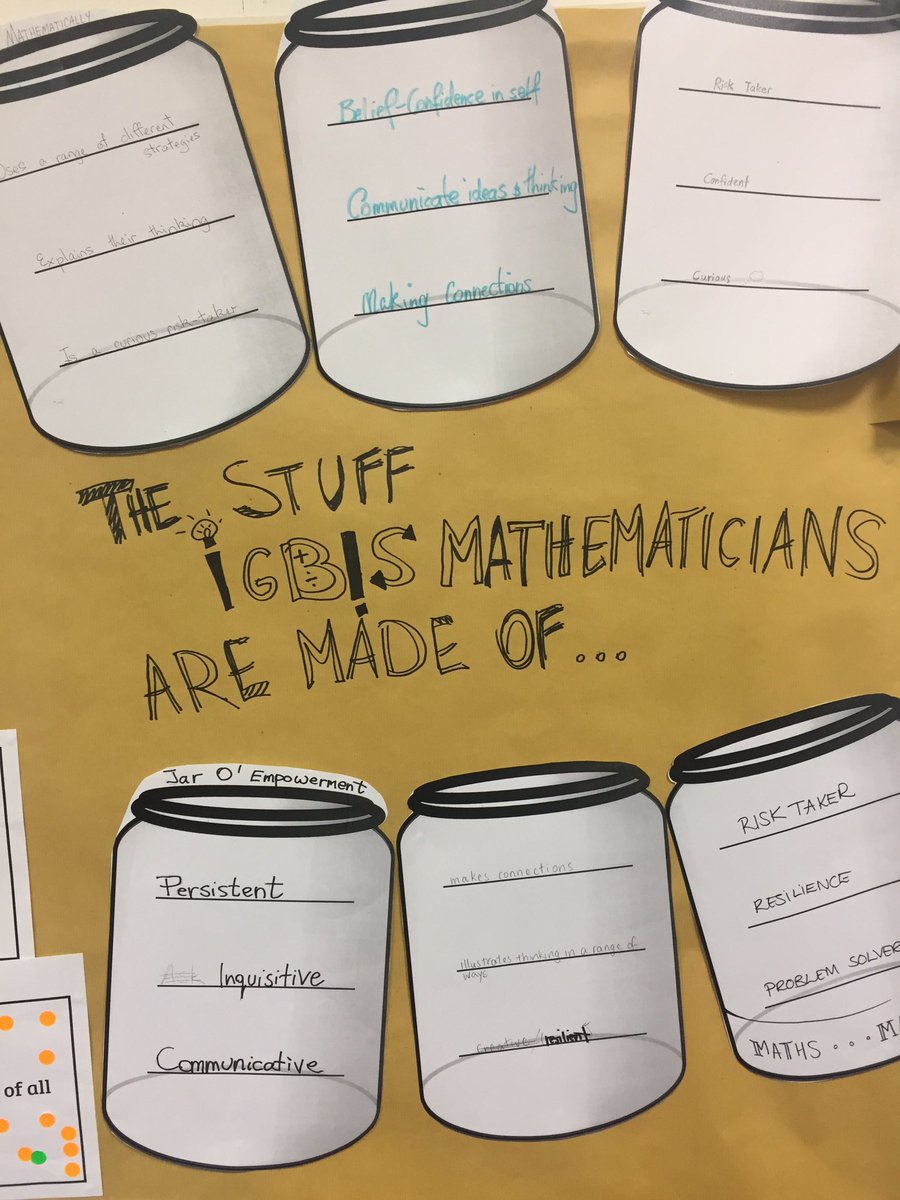 MATHEMATICALLY
Uses a range of different
strategies
Explains their thinking
Is a curious risk-taker
Belief-Confidence in self
Communicate ideas & thinking
Making Connections
Risk Taker
Confident
Curious
THE STUFF
IGBIS MATHEMATICIANS
ARE MADE OF...
Jar O' Empowerment
Persistent
Ask Inquisitive
Communicative
makes connections
illustrates thinking in a range of
ways
creative / resilient
RISK TAKER
RESILIENCE
PROBLEM SOLVER
MATHS . . . MA
of all